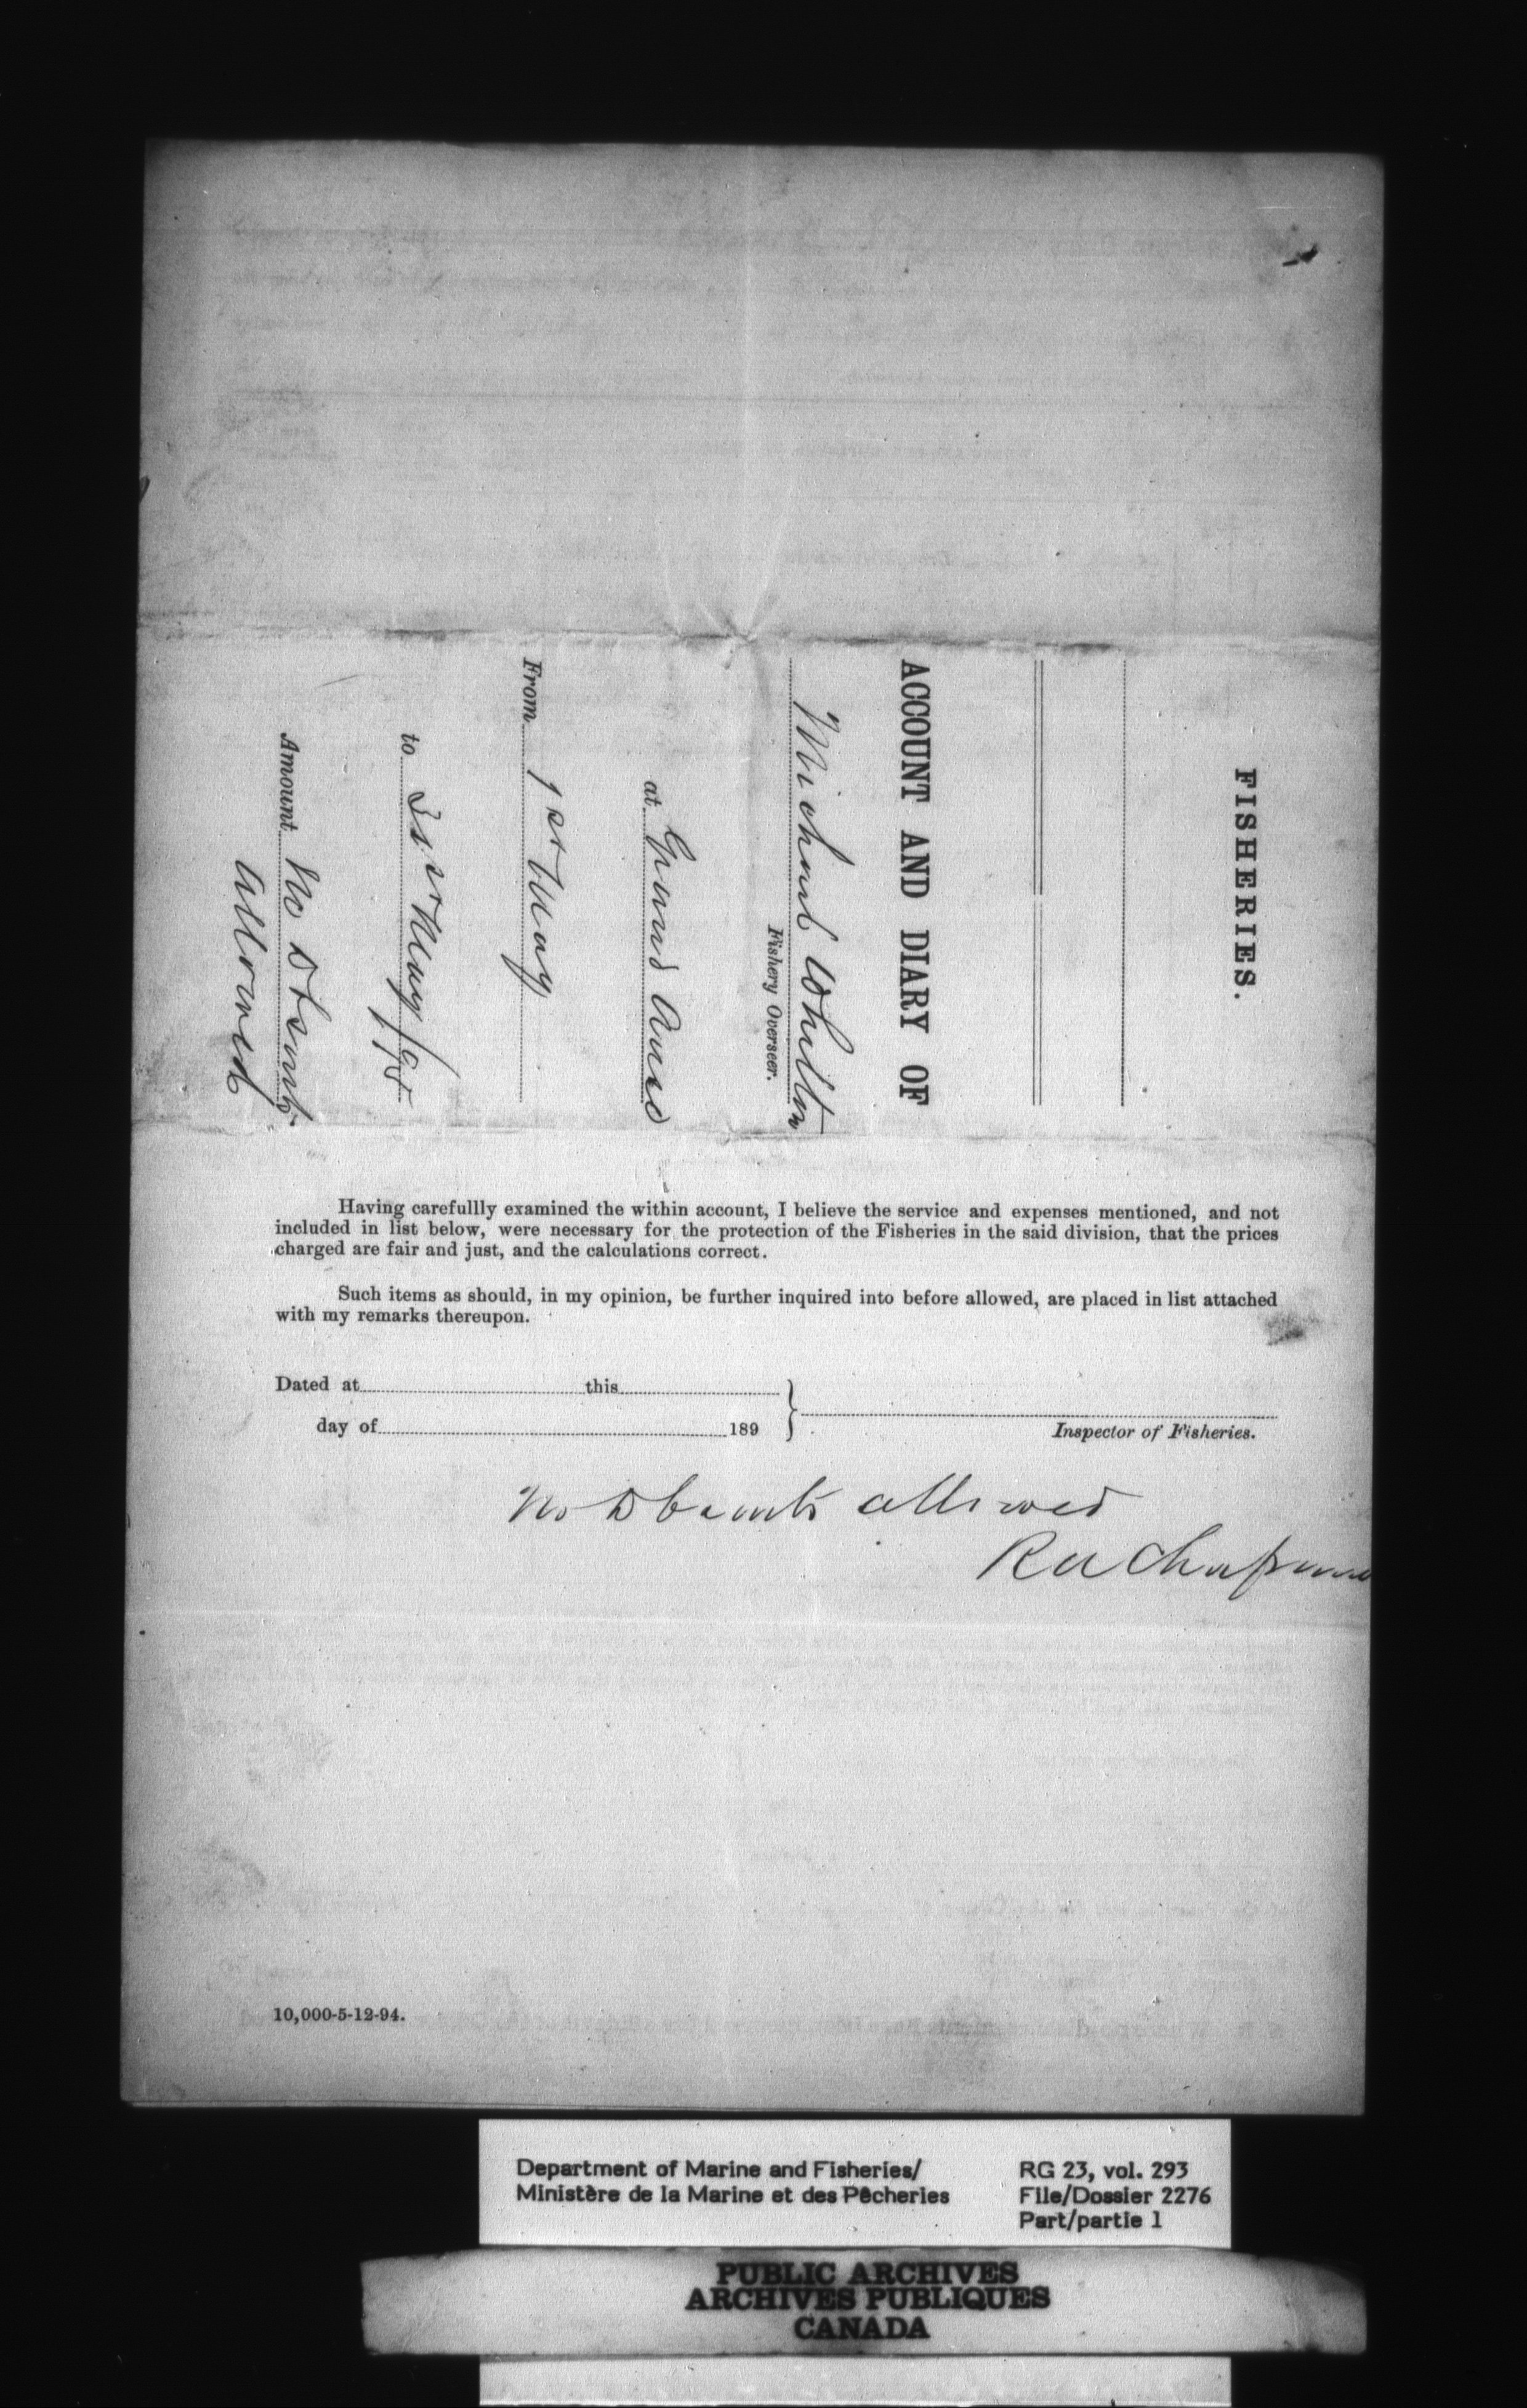 FISHERIES.
ACCOUNT AND DIARY OF
Michael Whelton
Fishery Overseer.
at Grand Anse
From 1st May
to 31st May /95
Amount No Dbsmts
allowed
Having carefullly examined the within account, I believe the service and expenses mentioned, and not
included in list below, were necessary for the protection of the Fisheries in the said division, that the prices
charged are fair and just, and the calculations correct.
Such items as should, in my opinion, be further inquired into before allowed, are placed in list attached
with my remarks thereupon.
Dated at this
day of 189
Inspector of Fisheries.
No allowed
R A Chapman
10,000-5-12-94.
Department of Marine and Fisheries/
Ministère de la Marine et des Pêcheries
RG 23, vol. 293
File/Dossier 2276
Part/partie 1
PUBLIC ARCHIVES
ARCHIVES PUBLIQUES
CANADA